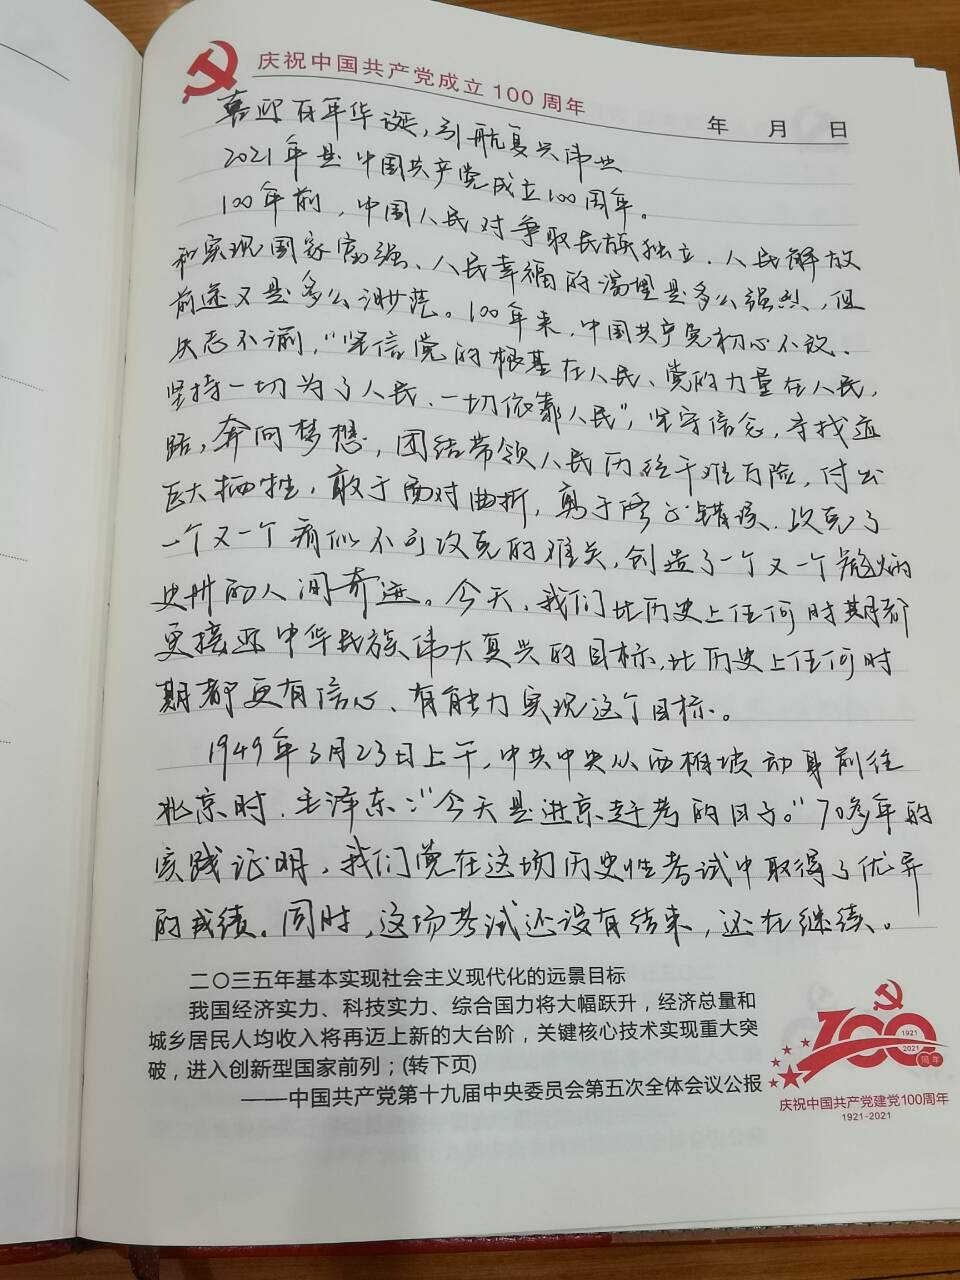 庆祝中国共产党成立100周年
年 月 日
喜迎百年华诞，引航复兴伟业
2021年是中国共产党成立100周年。
100年前，中国人民对争取民族独立、人民解放
和实现国家富强、人民幸福的渴望是多么强烈，但
前途又是多么渺茫。100年来，中国共产党初心不改、
矢志不渝，“坚信党的根基在人民、党的力量在人民，
坚持一切为了人民、一切依靠人民”，坚守信念，寻找道
路，奔向梦想，团结带领人民历经千难万险，付出
巨大牺牲，敢于面对曲折，勇于修正错误，攻克了
一个又一个看似不可攻克的难关，创造了一个又一个彪炳
史册的人间奇迹。今天，我们比历史上任何时期都
更接近中华民族伟大复兴的目标，比历史上任何时
期都更有信心、有能力实现这个目标。
1949年3月23日上午，中共中央从西柏坡动身前往
北京时，毛泽东：“今天是进京赶考的日子。”70多年的
实践证明，我们党在这场历史性考试中取得了优异
的成绩。同时，这场考试还没有结束，还在继续。
二〇三五年基本实现社会主义现代化的远景目标
我国经济实力、科技实力、综合国力将大幅跃升，经济总量和
城乡居民人均收入将再迈上新的大台阶，关键核心技术实现重大突
破，进入创新型国家前列；(转下页)
——中国共产党第十九届中央委员会第五次全体会议公报
100
1921
2021
周年
庆祝中国共产党建党100周年
1921-2021